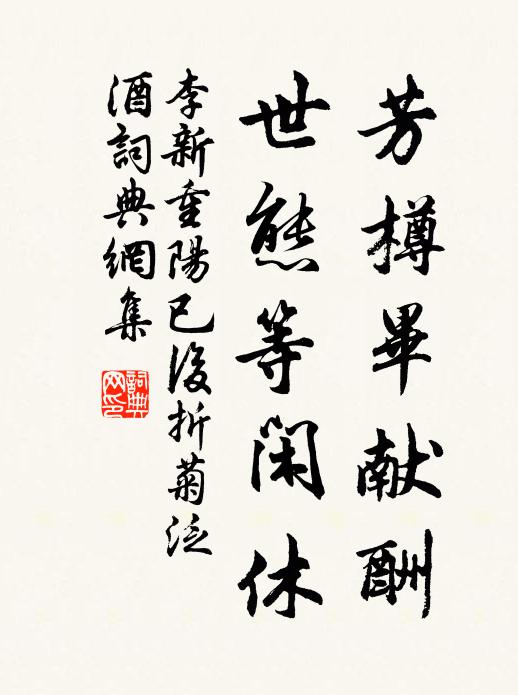 芳樽畢献酬
世態等閑休
李新重陽已後折菊泛
酒詞典網集
詞典网印